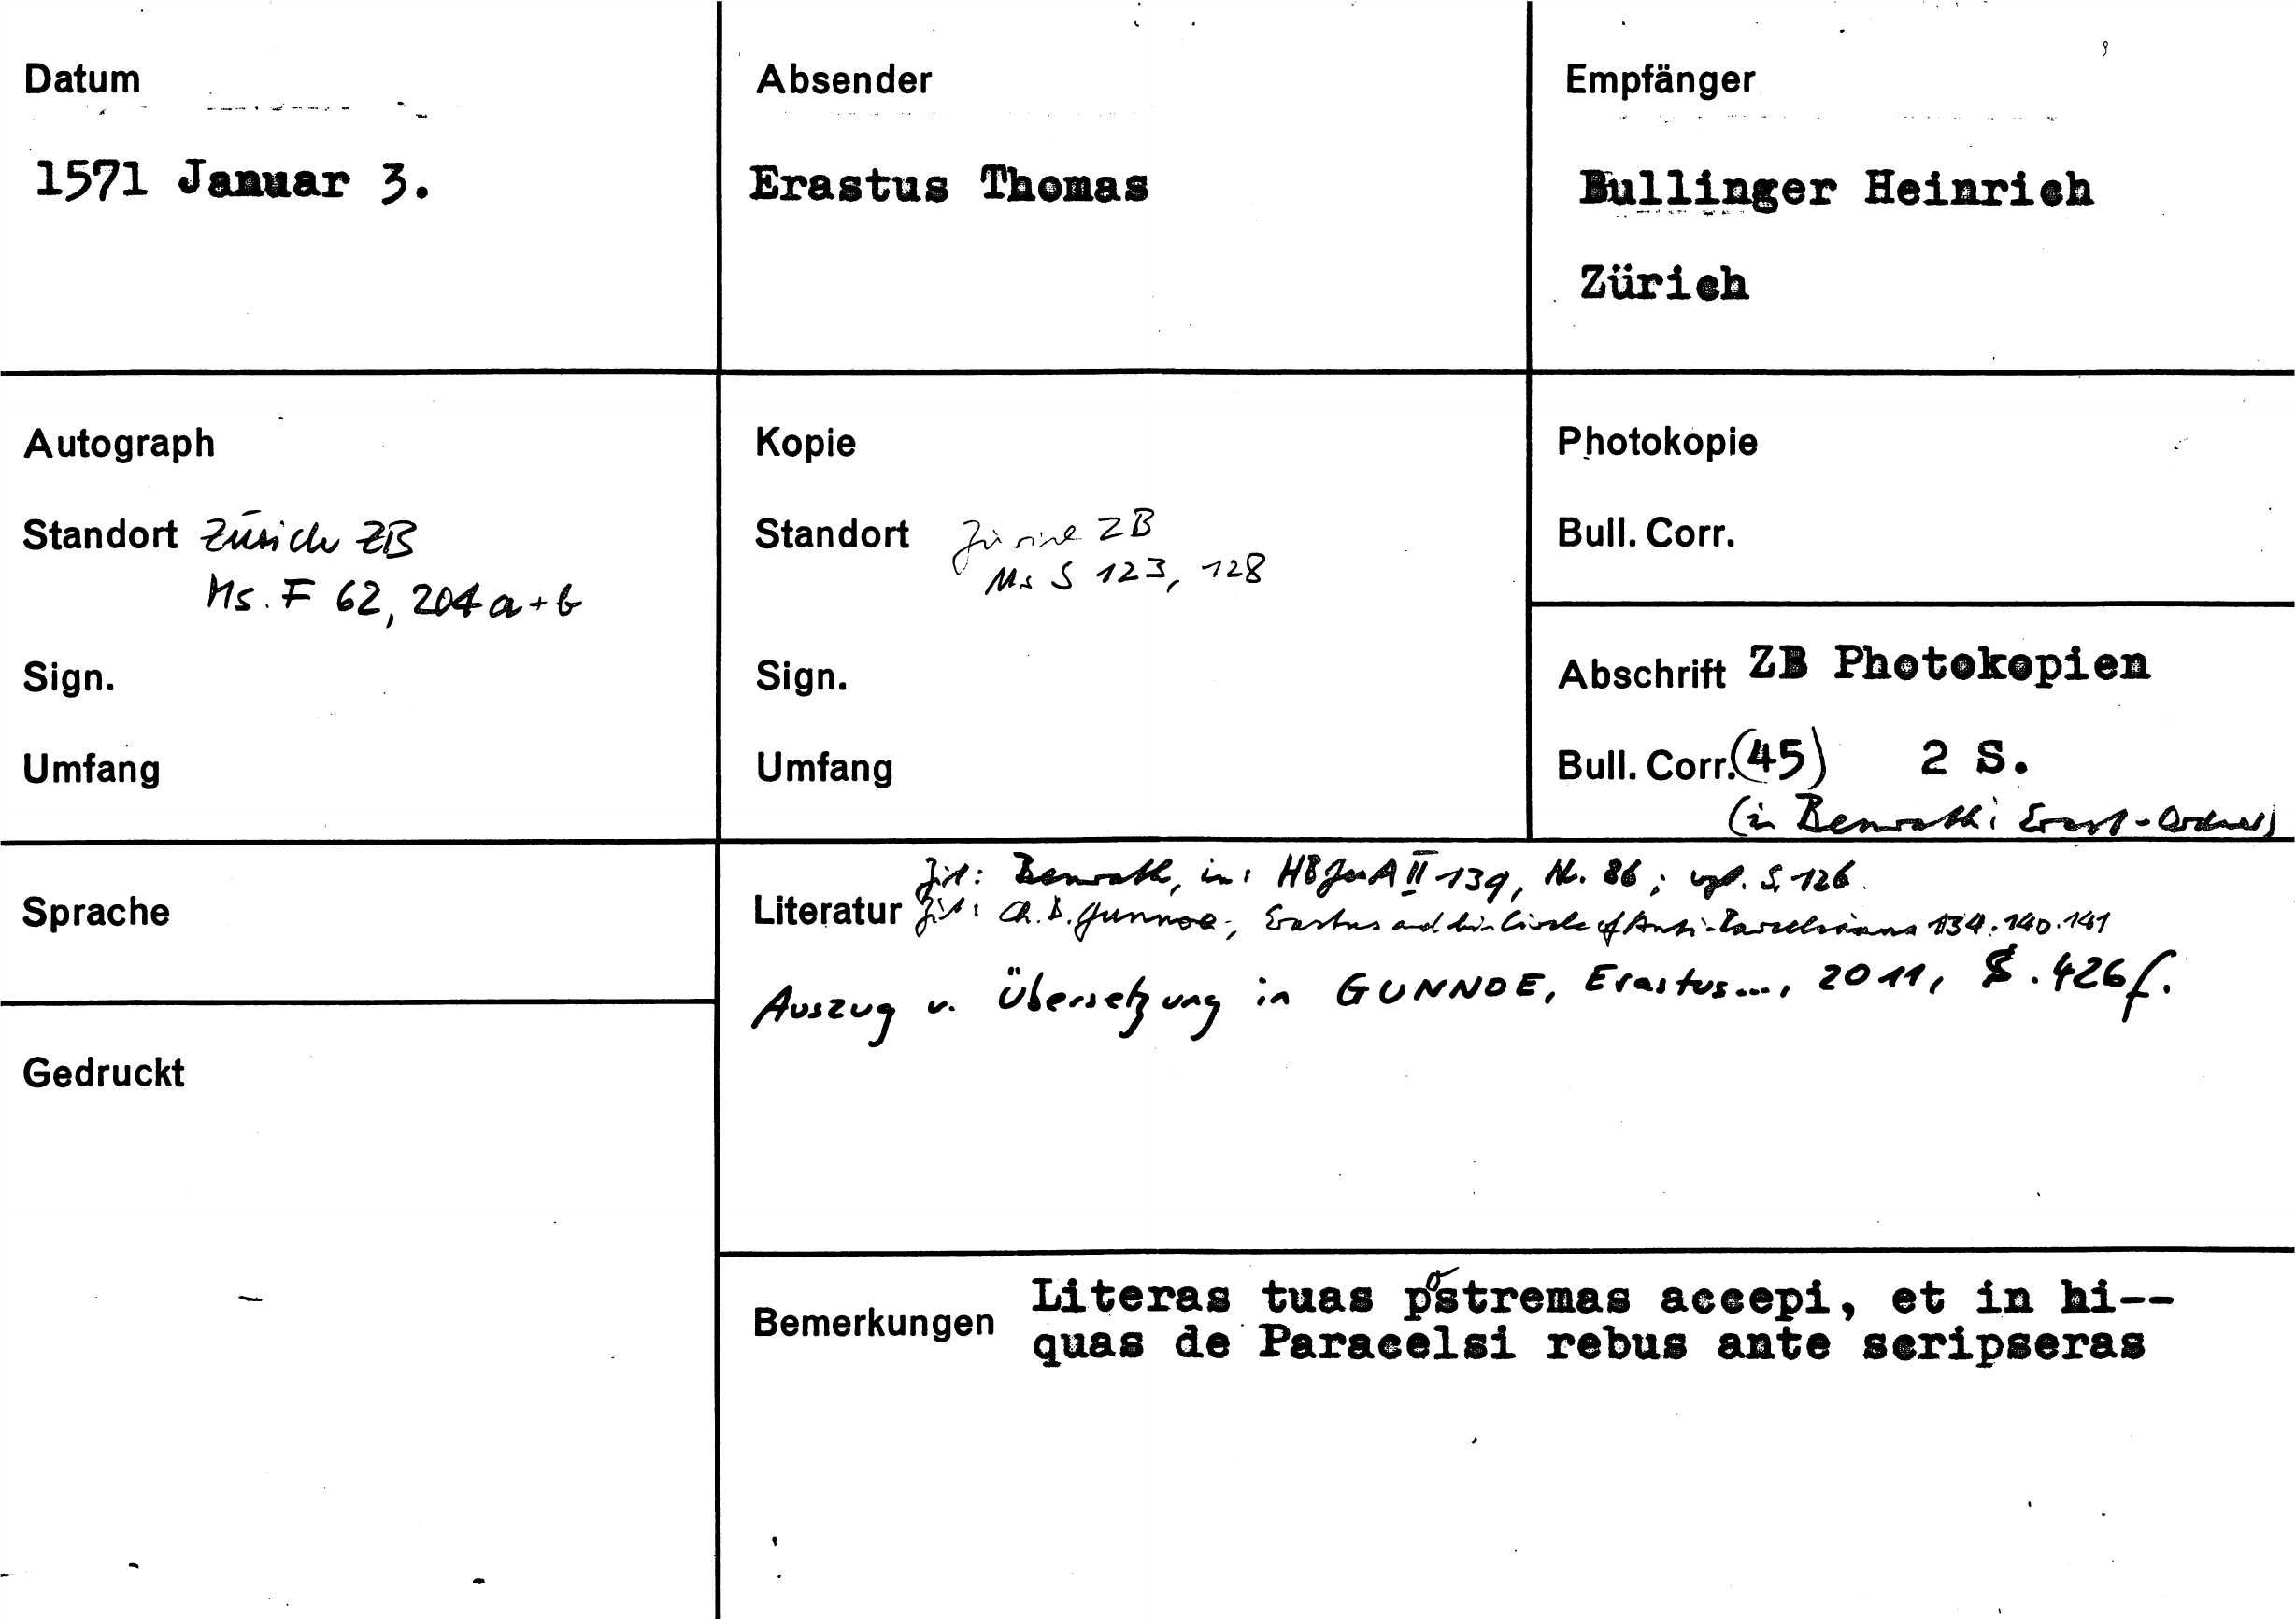 Datum
1571 Januar 3.
Absender
Erastus Thomas
Empfänger
Bullinger Heinrich
Zürich
Autograph
Standort Zürich ZB
Ms. F 62, 204 a+b
Sign.
Umfang
Kopie
Standort Zürich ZB
Ms S 123, 128
Sign.
Umfang
Photokopie
Bull. Corr.
Abschrift ZB Photokopien
Bull. Corr. (45) 2 S.
(in Benrath: Erast-Ordner)
Sprache
Gedruckt
Zit: Benrath, in: HBGesA II 139, Nr. 86; vgl. S. 126
Literatur Zit: Ch. D. Gunnoe, Erastus and his Circle of Anti-Paracelsians 134. 140. 141
Auszug u. Übersetzung in GUNNOE, Erastus..., 2011, S. 426f.
Bemerkungen Literas tuas postremas accepi, et in hi--
quas de Paracelsi rebus ante scripseras